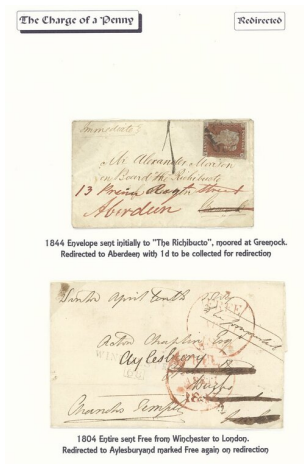 The Charge of a Penny
Redirected
Immediate
Mr. Alexander Morton
on Board the Richibucto
13 Street
Aberdeen
1844 Envelope sent initially to "The Richibucto", moored at Greenock.
Redirected to Aberdeen with 1d to be collected for redirection
April tenth
Acton Chaplin Esq
Aylesbury
Temple
1804 Entire sent Free from Winchester to London.
Redirected to Aylesburyand marked Free again on redirection